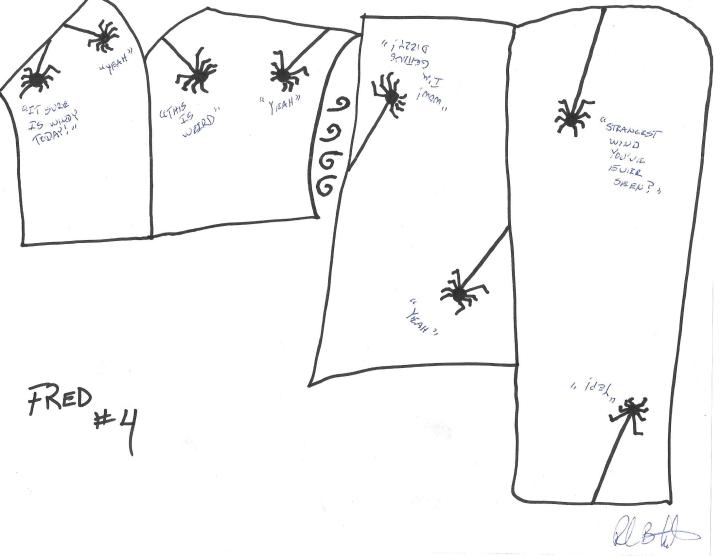 "IT SURE
IS WINDY
TODAY!"
"YEAH"
"THIS
IS
WEIRD"
"YEAH"
"WOW!
I'M
GETTING
DIZZY!"
"YEAH"
"STRANGEST
WIND
YOU'VE
EVER
SEEN?"
"YEP!"
FRED
#4